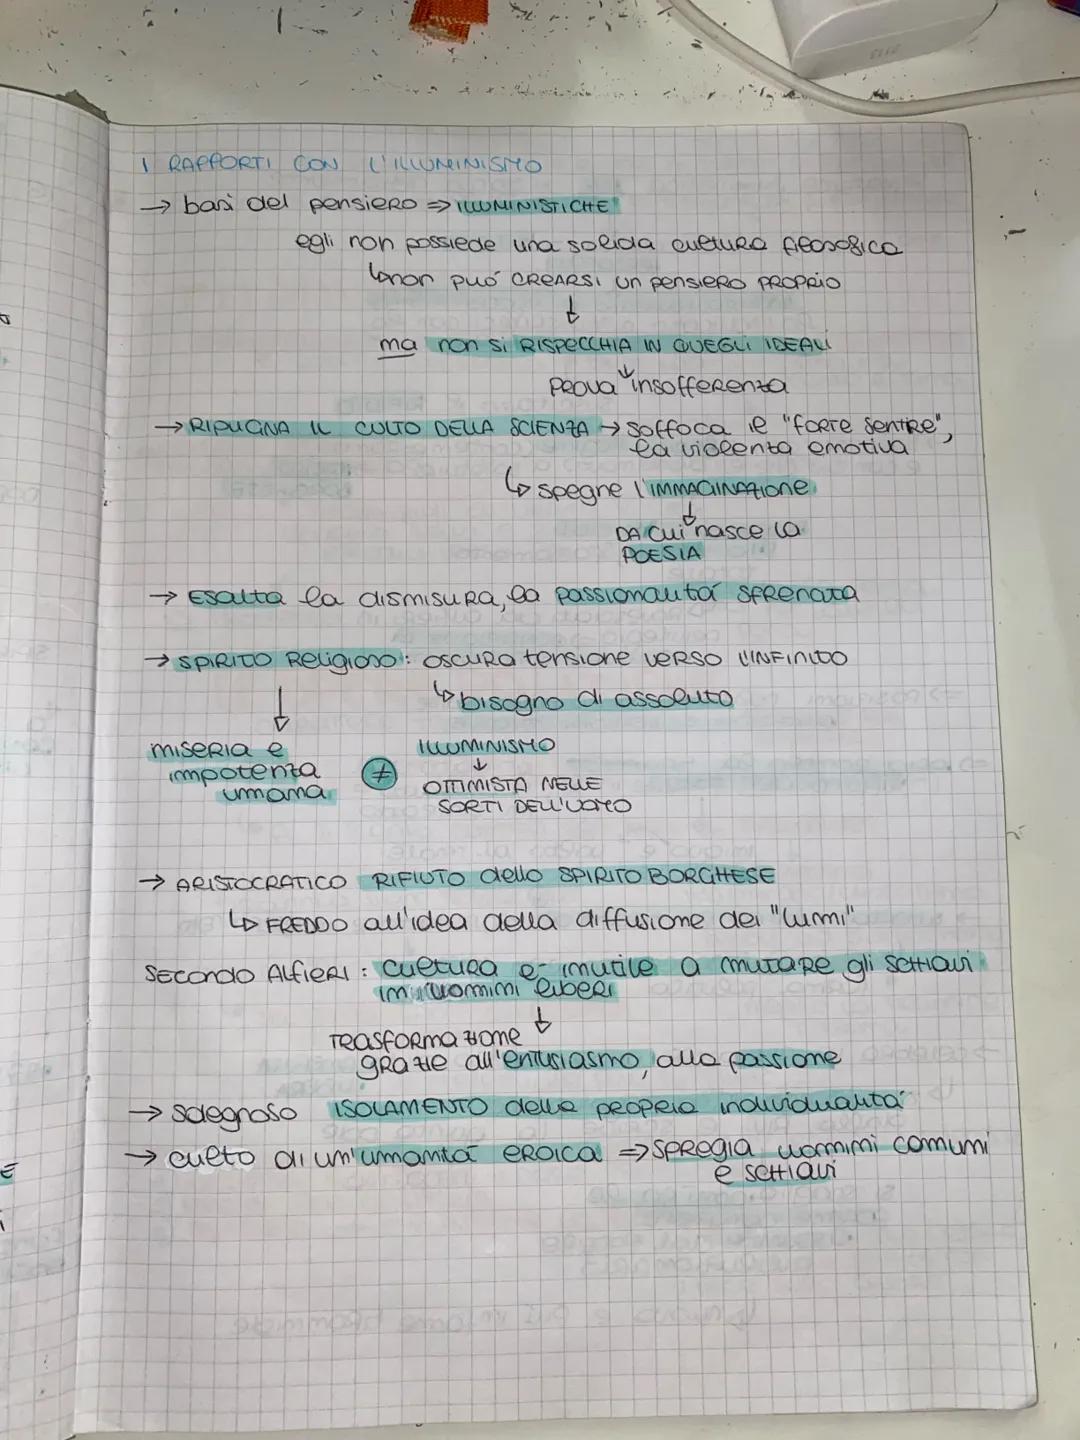 I RAPPORTI CON L'ILLUMINISMO
→ basi del pensiero ⇒ ILLUMINISTICHE
egli non possiede una solida cultura filosofica
↳ non può CREARSI un pensiero PROPRIO
↓
ma non si RISPECCHIA IN QUEGLI IDEALI
↓
PROVA insofferenza
→ RIPUGNA IL CULTO DELLA SCIENZA → soffoca il "forte sentire",
la violenta emotiva
↳ spegne l'IMMAGINAZIONE
↓
DA CUI nasce la
POESIA
→ ESALTA la dismisura, la passionalità SFRENATA
→ SPIRITO Religioso: OSCURA tensione VERSO L'INFINITO
↳ bisogno di assoluto
↓
miseria e
impotenza
umana
≠
ILLUMINISMO
↓
OTTIMISTA NELLE
SORTI DELL'UOMO
→ ARISTOCRATICO RIFIUTO dello SPIRITO BORGHESE
↳ FREDDO all'idea della diffusione dei "lumi"
SECONDO ALFIERI: cultura è inutile a mutare gli schiavi
in uomini liberi
↓
TRASFORMAZIONE
grazie all'entusiasmo, alla passione
→ sdegnoso ISOLAMENTO della propria individualità
→ culto di un'umanità EROICA ⇒ SPREGIA uomini comuni
e schiavi